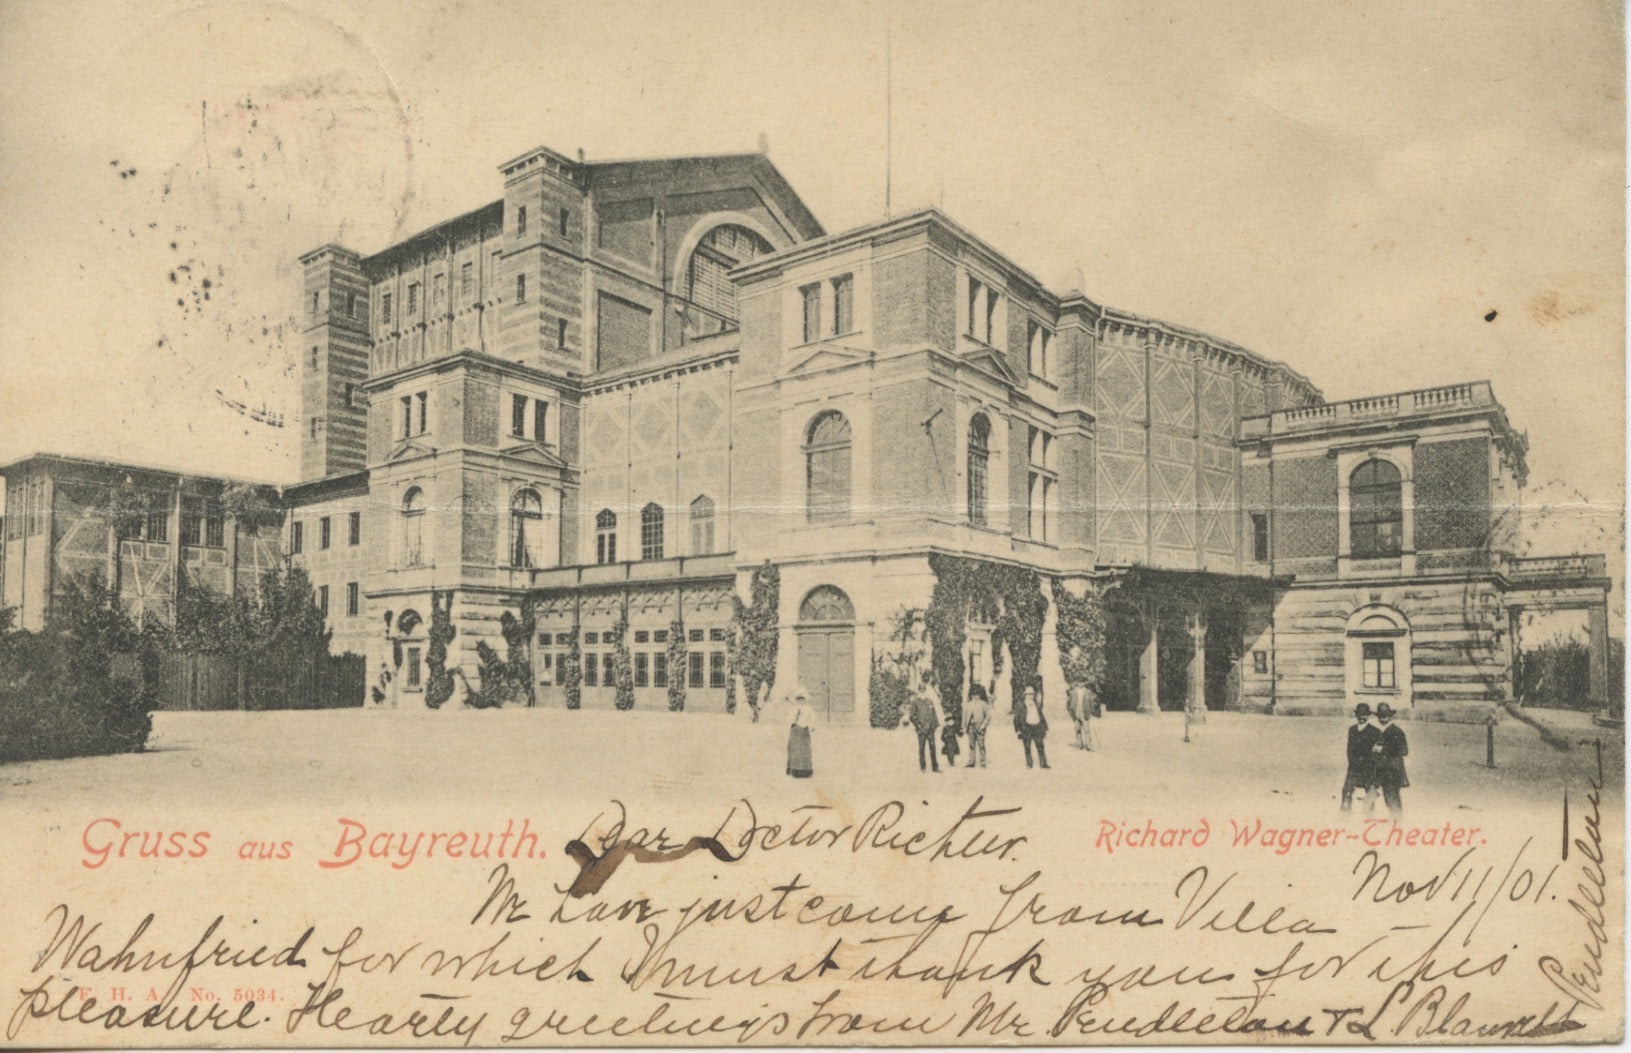 Gruss aus Bayreuth.
Dear Doctor Richter.
Richard Wagner-Theater.
Nov 11/01.
We have just come from Villa
Wahnfried for which I must thank you for this
pleasure. Hearty greetings from Mr Pendleton & L. Blauvelt
Pendleton
F. H. A. No. 5034.